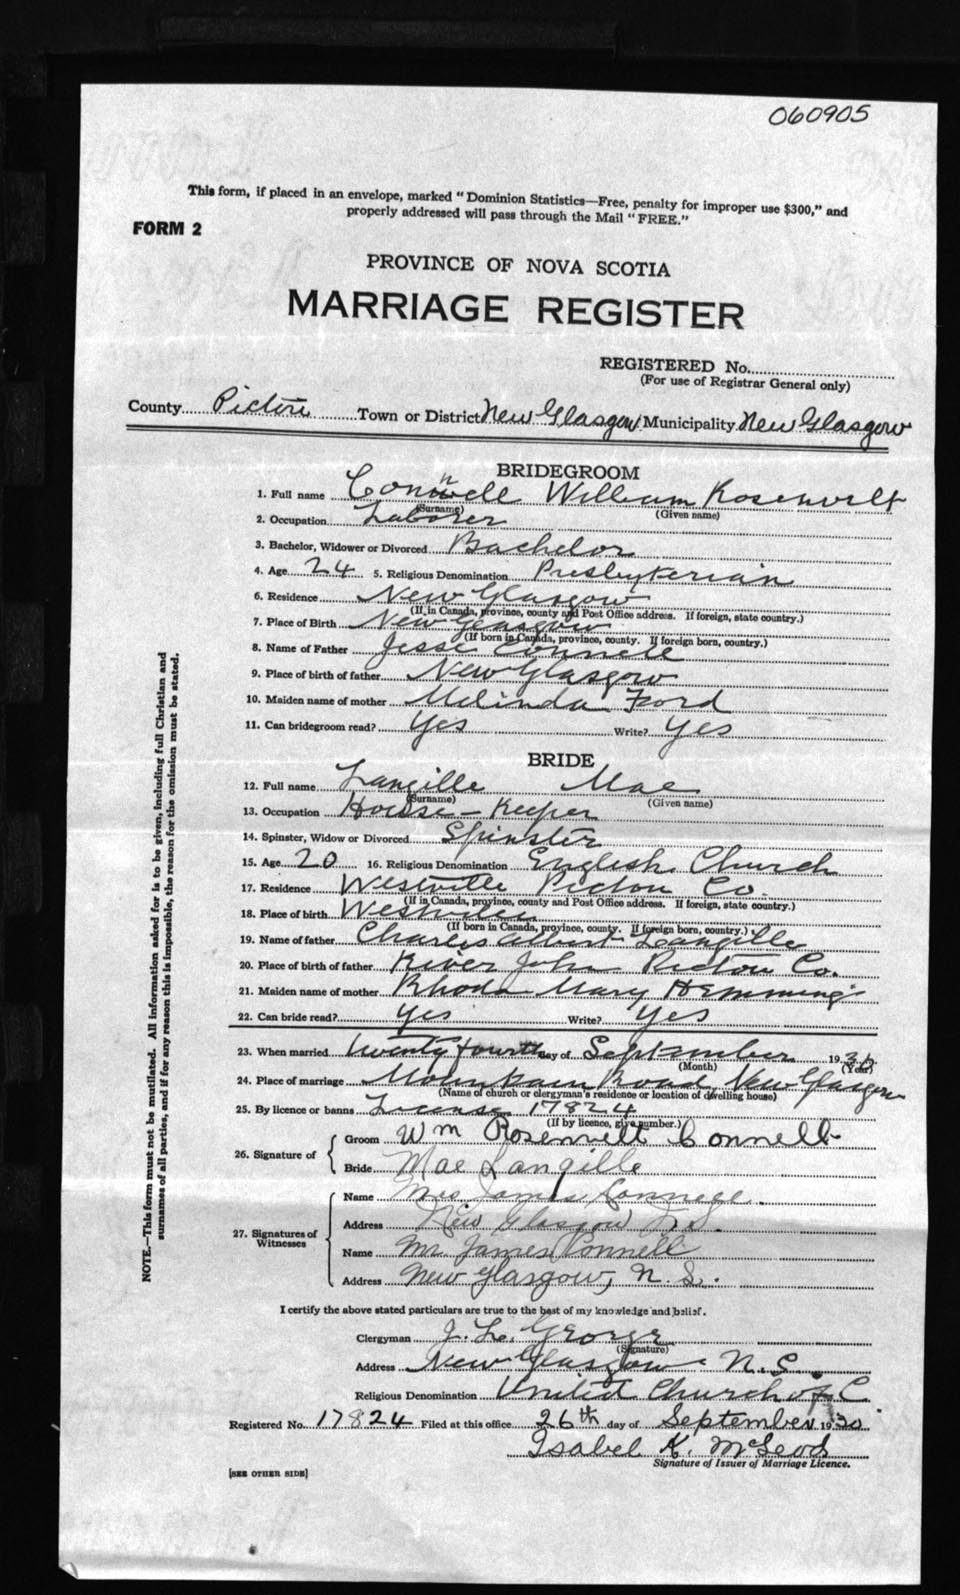 060905
This form, if placed in an envelope, marked "Dominion Statistics—Free, penalty for improper use $300," and
properly addressed will pass through the Mail "FREE."
FORM 2
PROVINCE OF NOVA SCOTIA
MARRIAGE REGISTER
REGISTERED No.
(For use of Registrar General only)
County Pictou Town or District New Glasgow Municipality New Glasgow
BRIDEGROOM
1. Full name Connell William Rosenvelt
(Surname) (Given name)
2. Occupation Laborer
3. Bachelor, Widower or Divorced Bachelor
4. Age 24 5. Religious Denomination Presbyterian
6. Residence New Glasgow
(If in Canada, province, county and Post Office address. If foreign, state country.)
7. Place of Birth New Glasgow
(If born in Canada, province, county. If foreign born, country.)
8. Name of Father Jesse Connell
9. Place of birth of father New Glasgow
10. Maiden name of mother Melinda Ford
11. Can bridegroom read? Yes Write? Yes
BRIDE
12. Full name Langille Mae
(Surname) (Given name)
13. Occupation House-Keeper
14. Spinster, Widow or Divorced Spinster
15. Age 20 16. Religious Denomination English Church
17. Residence Westville Pictou Co.
(If in Canada, province, county and Post Office address. If foreign, state country.)
18. Place of birth Westville
(If born in Canada, province, county. If foreign born, country.)
19. Name of father Charles Albert Langille
20. Place of birth of father River John Pictou Co.
21. Maiden name of mother Rhoda Mary Hemming
22. Can bride read? Yes Write? Yes
23. When married Twenty fourth day of September 1930
(Month) (Year)
24. Place of marriage Mountain Road, New Glasgow
(Name of church or clergyman's residence or location of dwelling house)
25. By licence or banns License 17824
(If by licence, give number.)
26. Signature of
Groom Wm Rosenvelt Connell
Bride Mae Langille
27. Signatures of Witnesses
Name Mrs James Connell
Address New Glasgow N.S.
Name Mr. James Connell
Address New Glasgow, N.S.
I certify the above stated particulars are true to the best of my knowledge and belief.
Clergyman J. L. George
(Signature)
Address New Glasgow N.S.
Religious Denomination United Church of C
Registered No. 17824 Filed at this office 26th day of September 1930
Isabel K. McLeod
Signature of Issuer of Marriage Licence.
[SEE OTHER SIDE]
NOTE.—This form must not be mutilated. All information asked for is to be given, including full Christian and
surnames of all parties, and if for any reason this is impossible, the reason for the omission must be stated.